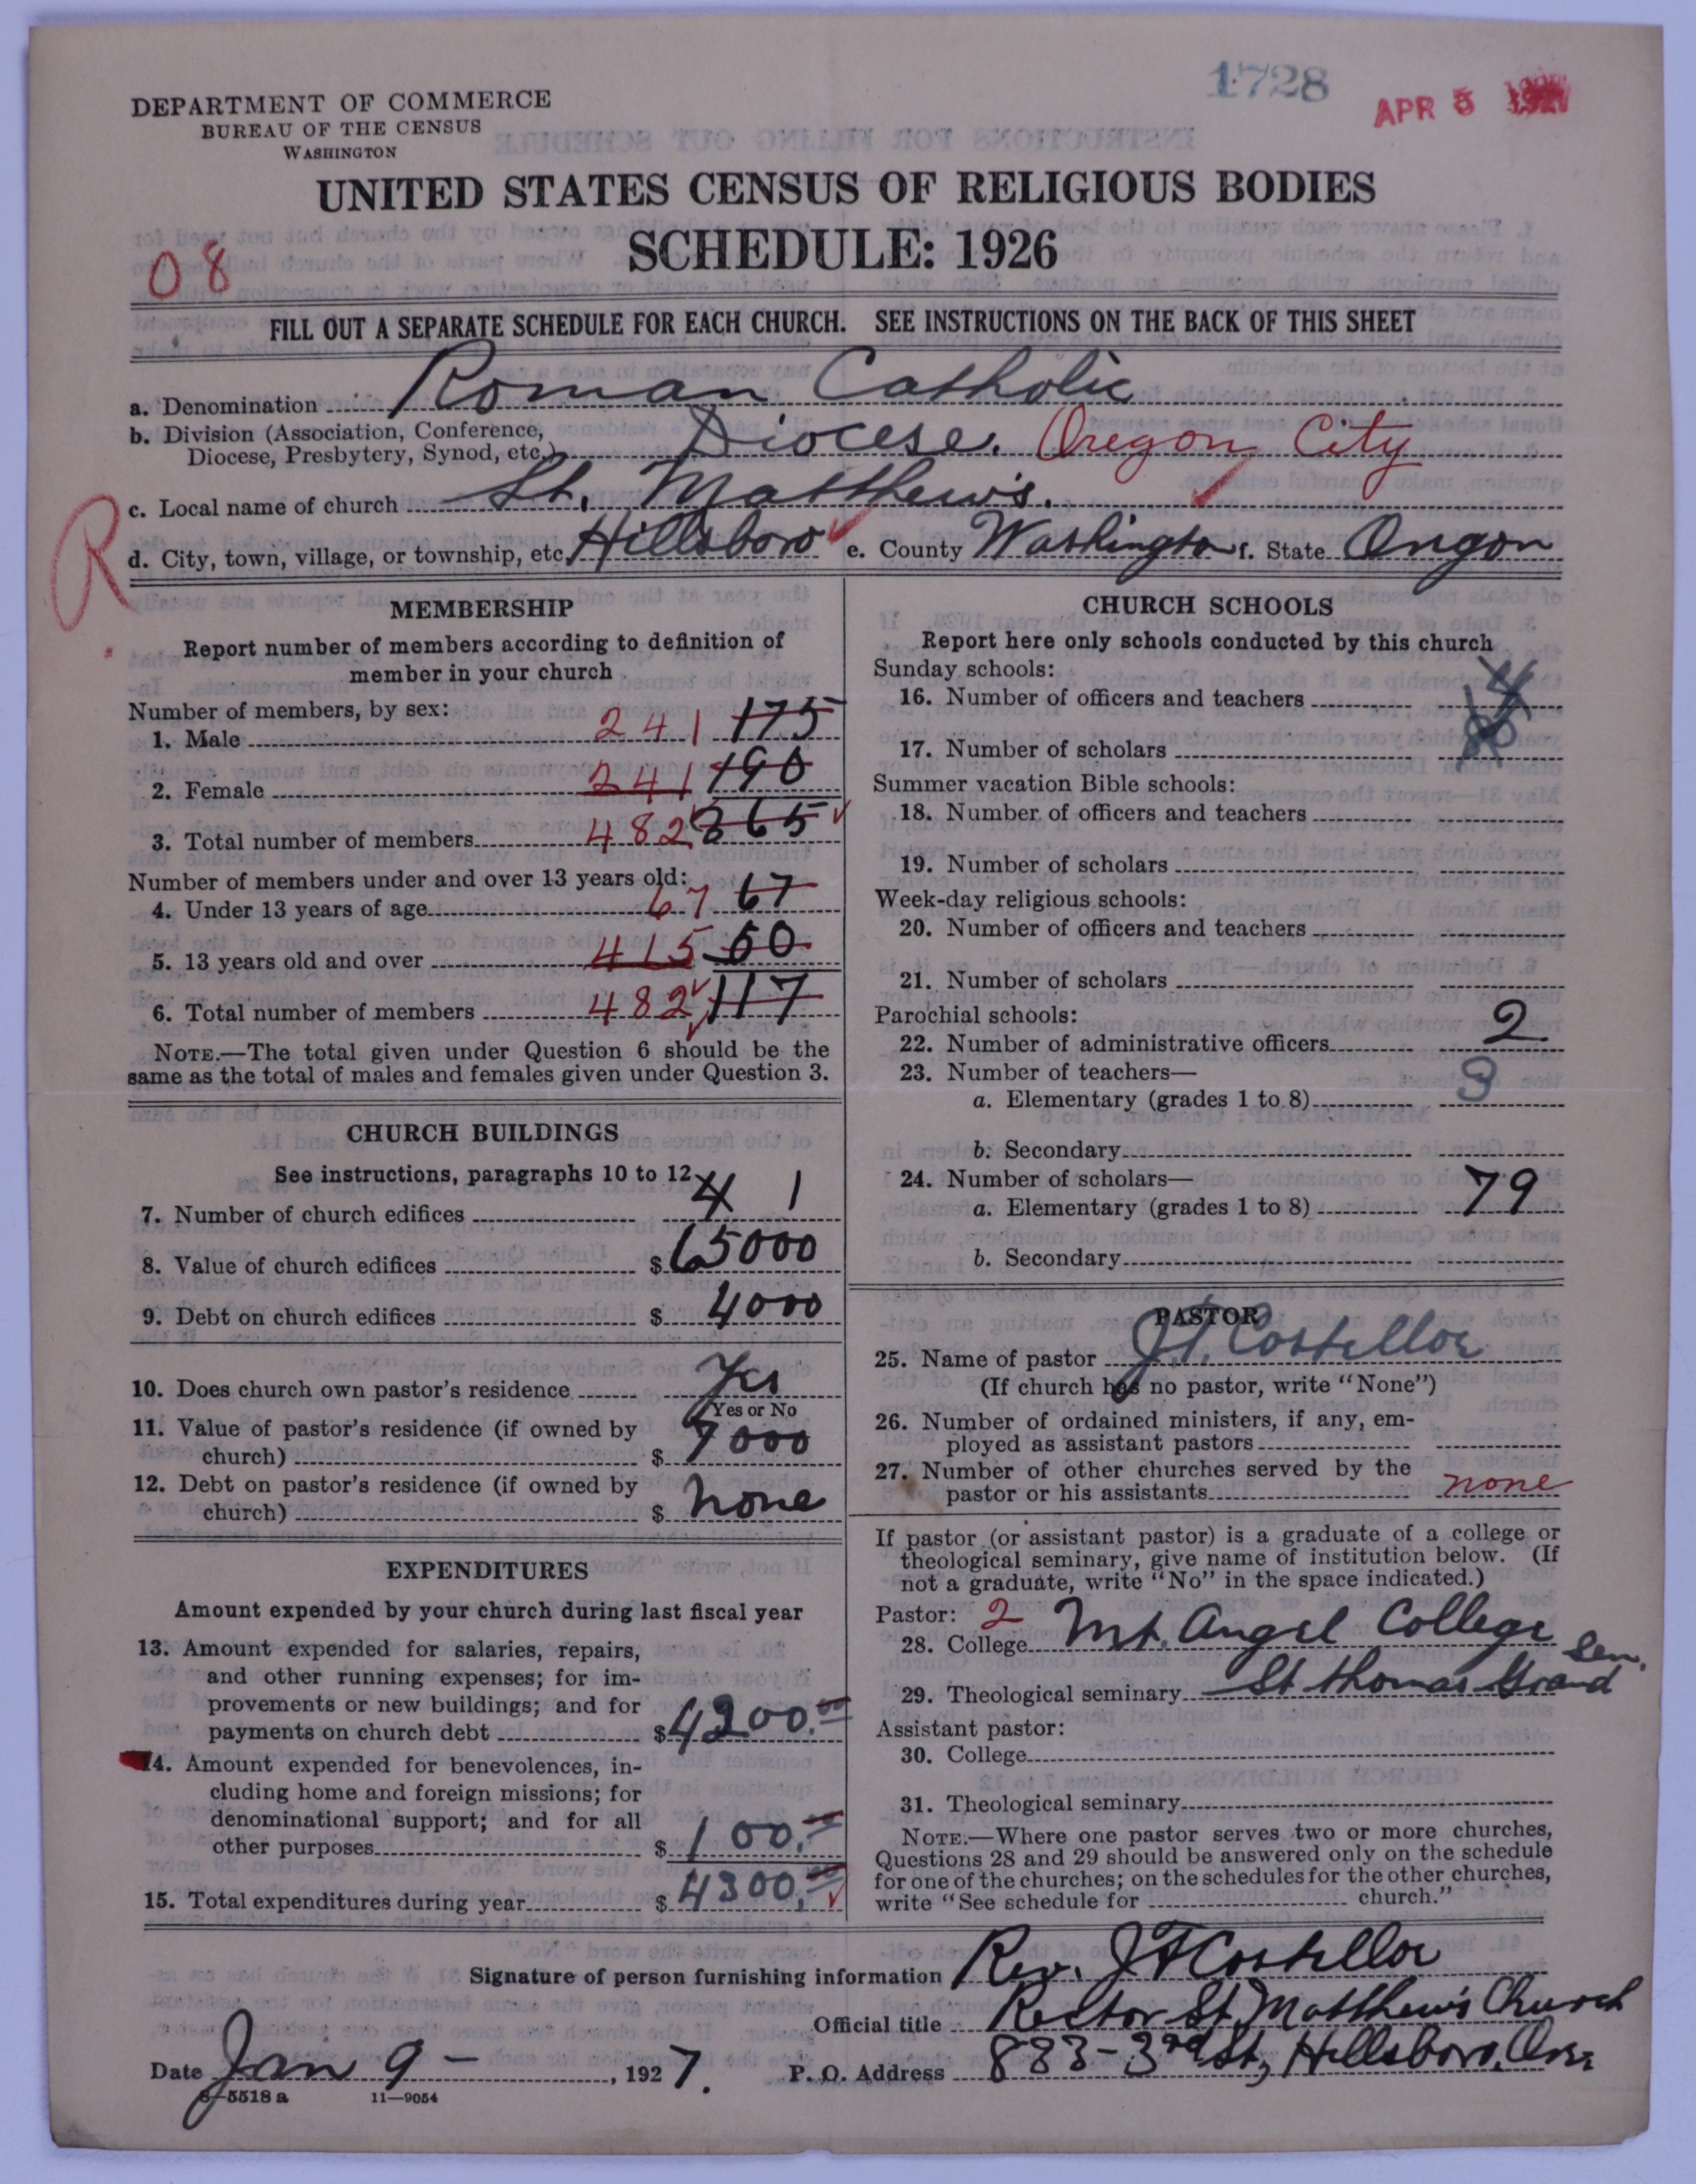 1728
APR 5
DEPARTMENT OF COMMERCE
BUREAU OF THE CENSUS
WASHINGTON
UNITED STATES CENSUS OF RELIGIOUS BODIES
SCHEDULE: 1926
08
FILL OUT A SEPARATE SCHEDULE FOR EACH CHURCH. SEE INSTRUCTIONS ON THE BACK OF THIS SHEET
a. Denomination Roman Catholic
b. Division (Association, Conference,
Diocese, Presbytery, Synod, etc.) Diocese. Oregon City
c. Local name of church St. Matthew's.
R
d. City, town, village, or township, etc. Hillsboro e. County Washington f. State Oregon
MEMBERSHIP
Report number of members according to definition of
member in your church
Number of members, by sex:
1. Male 241 175
2. Female 241 190
3. Total number of members 482 365
Number of members under and over 13 years old:
4. Under 13 years of age 67 67
5. 13 years old and over 415 50
6. Total number of members 482 117
NOTE.—The total given under Question 6 should be the
same as the total of males and females given under Question 3.
CHURCH BUILDINGS
See instructions, paragraphs 10 to 12
7. Number of church edifices 4 1
8. Value of church edifices $ 65000
9. Debt on church edifices $ 4000
10. Does church own pastor's residence Yes
Yes or No
11. Value of pastor's residence (if owned by
church) $ 7000
12. Debt on pastor's residence (if owned by
church) $ none
EXPENDITURES
Amount expended by your church during last fiscal year
13. Amount expended for salaries, repairs,
and other running expenses; for im-
provements or new buildings; and for
payments on church debt $ 4200.00
14. Amount expended for benevolences, in-
cluding home and foreign missions; for
denominational support; and for all
other purposes $ 100.00
15. Total expenditures during year $ 4300.00
CHURCH SCHOOLS
Report here only schools conducted by this church
Sunday schools:
16. Number of officers and teachers
17. Number of scholars
Summer vacation Bible schools:
18. Number of officers and teachers
19. Number of scholars
Week-day religious schools:
20. Number of officers and teachers
21. Number of scholars
Parochial schools:
22. Number of administrative officers 2
23. Number of teachers—
a. Elementary (grades 1 to 8) 3
b. Secondary
24. Number of scholars—
a. Elementary (grades 1 to 8) 79
b. Secondary
PASTOR
25. Name of pastor J.F. Costelloe
(If church has no pastor, write "None")
26. Number of ordained ministers, if any, em-
ployed as assistant pastors
27. Number of other churches served by the
pastor or his assistants none
If pastor (or assistant pastor) is a graduate of a college or
theological seminary, give name of institution below. (If
not a graduate, write "No" in the space indicated.)
Pastor: 2
28. College Mt. Angel College
29. Theological seminary St Thomas Grand Sem.
Assistant pastor:
30. College
31. Theological seminary
NOTE.—Where one pastor serves two or more churches,
Questions 28 and 29 should be answered only on the schedule
for one of the churches; on the schedules for the other churches,
write "See schedule for church."
Signature of person furnishing information Rev. J F Costelloe
Official title Rector St. Matthew's Church
Date Jan 9 - , 1927. P. O. Address 883-3rd St, Hillsboro, Ore
8—5518 a 11—9054